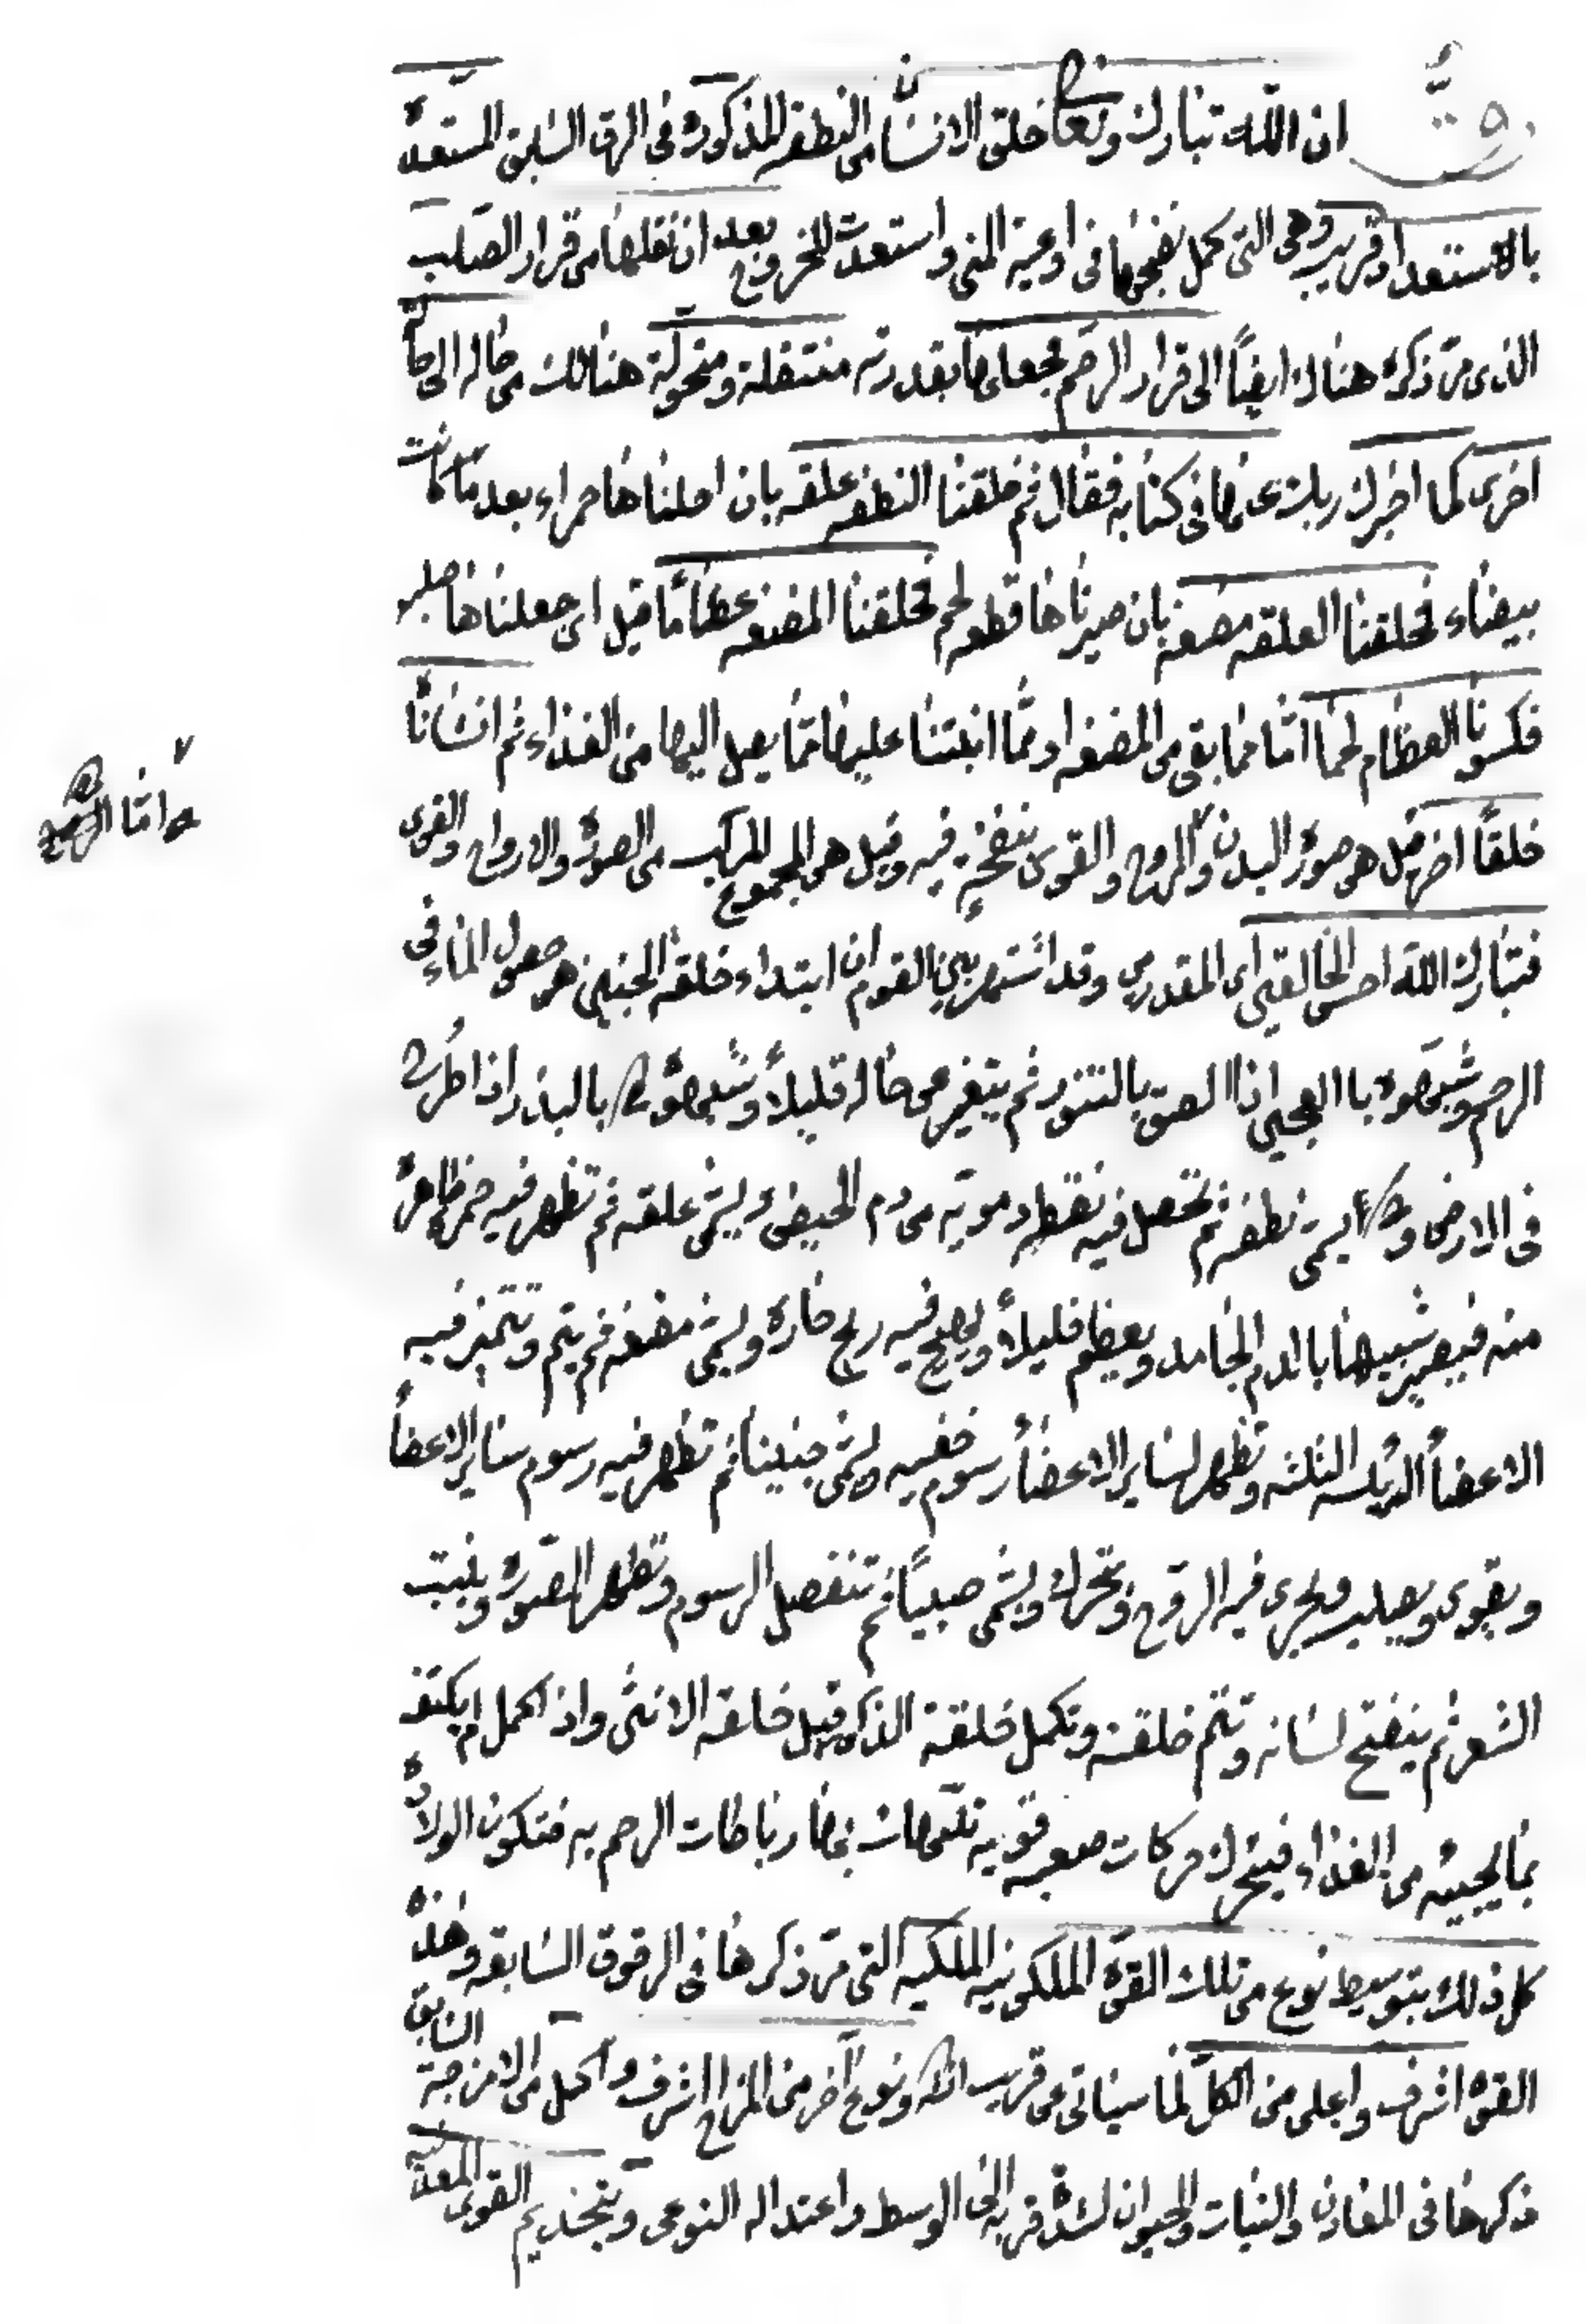 ان الله تبارك وتعالى خلق الانسان من النطفه المذكورة فى الرق السابق المستعدة
بالاستعداد قريب وهى التى كمل نضجها فى اوعية المنى واستعدت للخروج بعد ان نقلها من قرار الصلب
الذى مرّ ذكره هناك ايضاً الى قرار الرحم فجعلها بقدرته منتقلة ومتحولة هنالك من حاله الى حالة
اخرى كما اخبرك ربك عنها فى كتابه فقال ثم خلقنا النطفه علقه بان احلناها حمراء بعد ما كانت
بيضاء فخلقنا العلقه مضغه بان صيرناها قطعه لحم فخلقنا المضغه عظاماً قيل اى جعلناها صلبه
فكسونا العظام لحماً امّا مما بقى من المضغه او ممّا انبتنا عليها ممّا يصل اليها من الغذاء ثم انشاناه
خلقاً اخر قيل هو صورة البدن والروح والقوى بنفخه فيه وقيل هى المجموع المركب من الصورة والارواح والقوى
فتبارك الله احسن الخالقين اى المقدرين وقد اشتهر بين القوم ان ابتداء خلقة الجنين هو حصول الماء فى
الرحم وشبهوه با العجين اذا الصق بالتنور ثم يتغير عن حاله قليلاً وشبهوه بالبذر اذا طرح
فى الارض و يسمى نطفه ثم تحصل فيه نقطه دمويه من دم الحيض ويسمى علقه ثم تظهر فيه حمرة ظاهرة
منه فيصير شبيها با الدم الجامد ويعظم قليلاً ويهيج فيه ريح حارة ويسمى مضغه ثم يتم وتتميز فيه
الاعضاء الرئيسه الثلثه وتظهر لساير الاعضاء رسوم خفيه ويسمى جنيناً ثم تظهر فيه رسوم ساير الاعضاء
ويقوى ويصلب ويجرى فيه الروح وتحرك ويسمى صبياً ثم تنفصل الرسوم وتظهر الصورة وينبت
الشعر ثم ينفتح لسانه وتتم خلقته وتكمل خلقة الذكر قبل خلقه الانثى واذا كمل لم يكتف
بما يجيئه من الغذاء فيتحرك حركات صعبه قويه بها رباطات الرحم به فتكون الولادة
كل ذلك بتوسيط نوع من تلك القوة الملكوتيه الملكيه التى مرّ ذكرها فى الرقوق السابقه وهذه
القوة اشرف واعلى من الكلّ لما سياتى عن قريب ونوع آخر من المزاج اشرف واكمل من الامزجة السابق
ذكرها فى المعادن والنبات والحيوان لشدة قربه الى الوسط واعتداله النوعى القوى
وامّا الروح